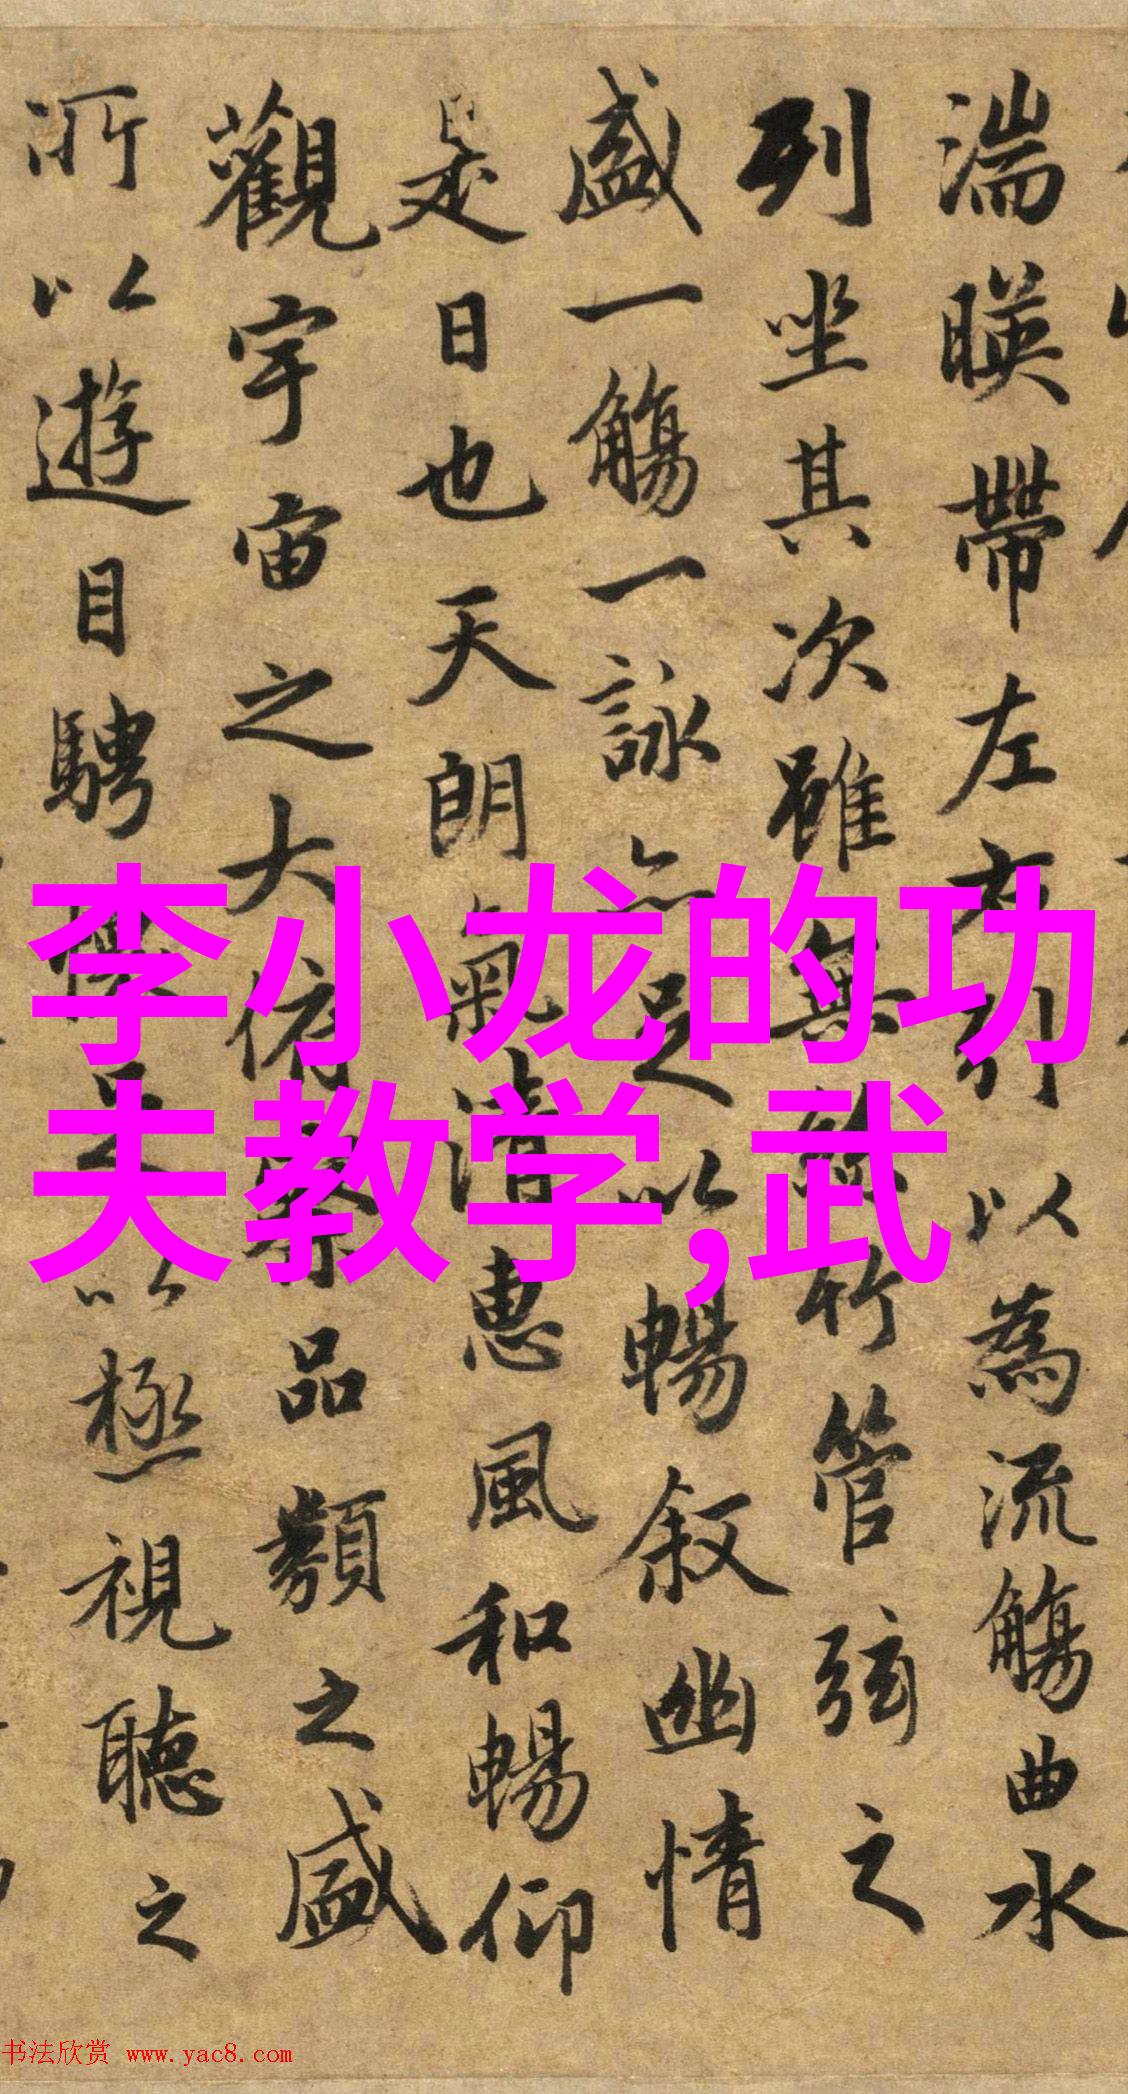 湍暎帶左右引以為流觴曲水
列坐其次雖無絲竹管弦之
盛一觴一詠亦足以暢叙幽情
是日也天朗氣清惠風和暢仰
觀宇宙之大俯察品類之盛
所以遊目騁懷足以極視聽之
李小龙的功
夫教学,武
书法欣赏 www.yac8.com